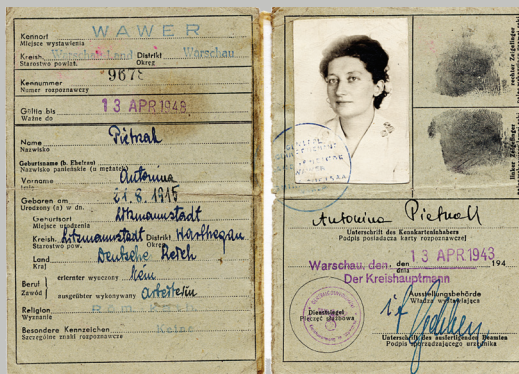 Kennort WAWER
Miejsce wystawienia
Kreish. Warschau-Land Distrikt Warschau
Starostwo powiat. Okręg
Kennummer 9678
Numer rozpoznawczy
Gültig bis 13 APR 1948
Ważne do
Name Pietrak
Nazwisko
Geburtsname (b. Ehefrau)
Nazwisko panieńskie (u mężatek)
Vorname Antonina
Imię
Geboren am 21. 8. 1915
Urodzony (a) w dn.
Geburtsort Litzmannstadt
Miejsce urodzenia
Kreish. Litzmannstadt Distrikt Warthegau
Starostwo pow. Okręg
Land Deutsche Reich
Kraj
Beruf erlernter wyuczony Kein
Zawód ausgeübter wykonywany Arbeiterin
Religion Röm. Kath.
Wyznanie
Besondere Kennzeichen Keine
Szczególne znaki rozpoznawcze
rechter Zeigefinger
linker Zeigefinger
Antonina Pietrak
Unterschrift des Kennkarteninhabers
Podpis posiadacza karty rozpoznawczej
Warschau, den 13 APR 1943 194
dnia
Der Kreishauptmann
Ausstellungsbehörde
Władza wystawiająca
Dienstsiegel
Pieczęć służbowa
Unterschrift des ausfertigenden Beamten
Podpis sporządzającego urzędnika